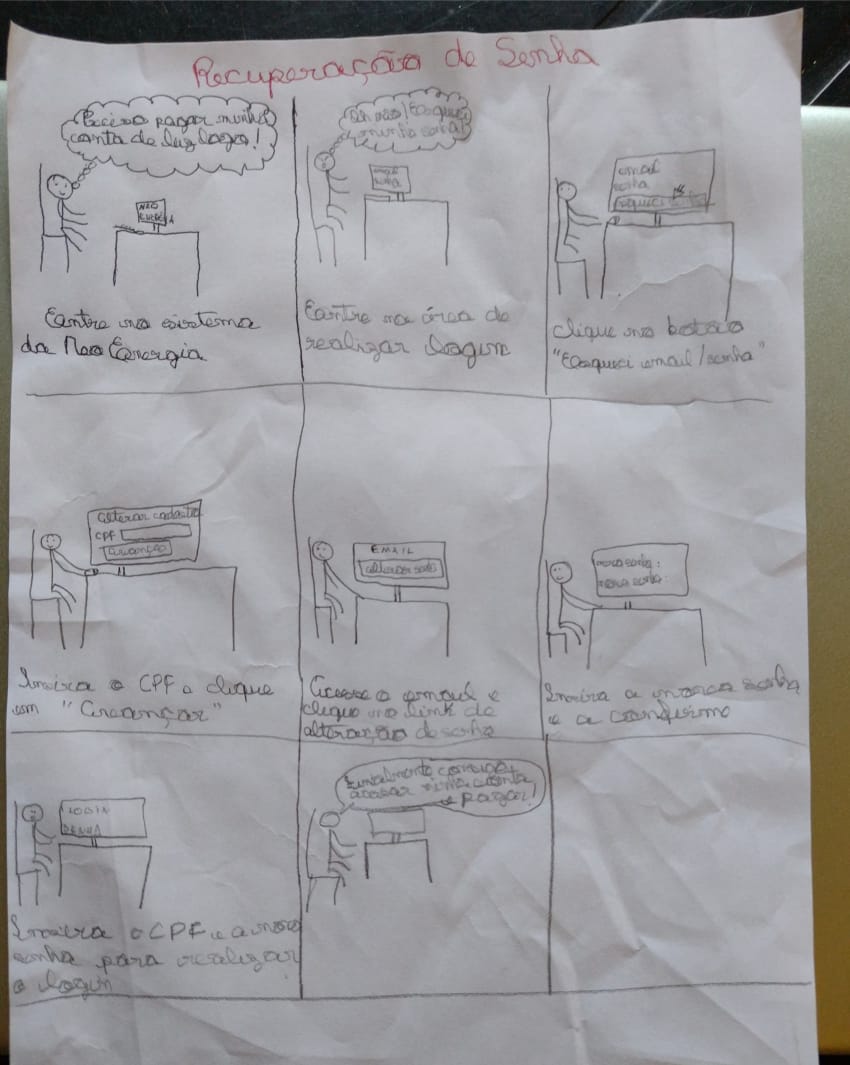 Recuperação de Senha
Preciso pagar minha
conta de luz logo!
NEO
ENERGIA
Entre no sistema
da Neo Energia
Oh não! Esqueci
minha senha!
email
senha
Entre na área de
realizar login
email
senha
Esqueci
Clique no botão
"Esqueci email/senha"
Alterar cadastro
CPF
Avançar
Insira o CPF e clique
em "Avançar"
EMAIL
alterar senha
Acesse o email e
clique no link de
alteração de senha
nova senha:
nova senha:
Insira a nova senha
e a confirme
LOGIN
SENHA
Insira o CPF e a nova
senha para realizar
o login
Finalmente consigo
acessar minha conta
e pagar!